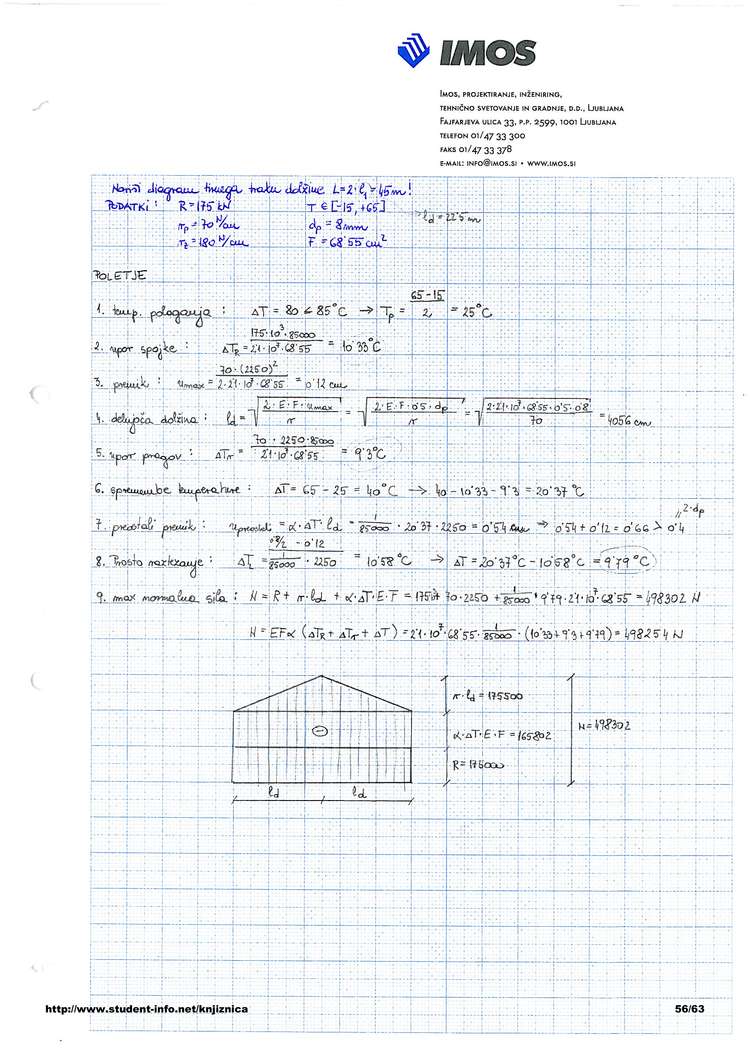 IMOS
IMOS, PROJEKTIRANJE, INŽENIRING,
TEHNIČNO SVETOVANJE IN GRADNJE, D.D., LJUBLJANA
FAJFARJEVA ULICA 33, P.P. 2599, 1001 LJUBLJANA
TELEFON 01/47 33 300
FAKS 01/47 33 378
E-MAIL: INFO@IMOS.SI • WWW.IMOS.SI
Nariši diagram tirnega traku dolžine L=2·l₁=45m!
PODATKI: R=175 kN T ∈ [-15, +65] l_d = 22'5 m
r_p = 70 N/cm d_p = 8mm
r_z = 180 N/cm F = 68'55 cm²
POLETJE
1. temp. polaganja : ΔT = 80 < 85°C → T_p = (65-15)/2 = 25°C
2. upor spojke : ΔT_R = 175·10³·85000 / 2'1·10⁷·68'55 = 10'33°C
3. premik : u_max = 70·(2250)² / 2·2'1·10⁷·68'55 = 0'12 cm
4. delujoča dolžina : l_d = √(2·E·F·u_max / r) = √(2·E·F·0'5·d_p / r) = √(2·2'1·10⁷·68'55·0'5·0'8 / 70) = 4056 cm
5. upor pragov : ΔT_r = 70·2250·85000 / 2'1·10⁷·68'55 = 9'3°C
6. spremembe temperature : ΔT = 65 - 25 = 40°C → 40 - 10'33 - 9'3 = 20'37 °C
7. preostali premik : u_preostali = α·ΔT·l_d = 1/85000 · 20'37 · 2250 = 0'54 cm ⇒ 0'54 + 0'12 = 0'66 > 0'4 " 2·d_p
8. Prosto raztezanje : ΔT_L = (0'8/2 - 0'12) / (1/85000 · 2250) = 10'58°C → ΔT = 20'37°C - 10'58°C = 9'79°C
9. max normalna sila : N = R + r·l_d + α·ΔT·E·F = 175 + 70·2250 + 1/85000 · 9'79·2'1·10⁷·68'55 = 498302 N
N = EFα (ΔT_R + ΔT_r + ΔT) = 2'1·10⁷·68'55· 1/85000 · (10'33 + 9'3 + 9'79) = 498254 N
r·l_d = 175500
⊖
α·ΔT·E·F = 165802
N = 498302
R = 175000
l_d l_d
http://www.student-info.net/knjiznica
56/63